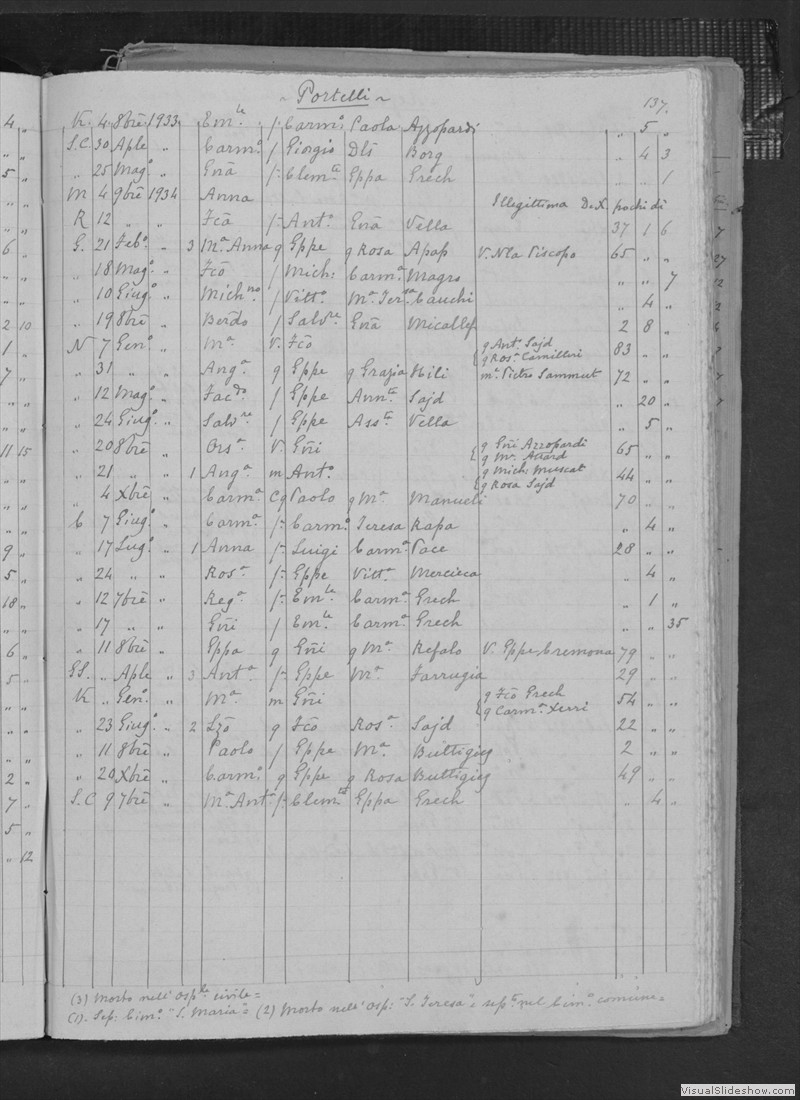 ~ Portelli ~ 137.
K. 4 8bre 1933 Emle f. Carmo Paola Azzopardi „ 5 „
S.C 30 Aple „ Carmo f Giorgio Dls Borg „ 4 3
„ 25 Mago „ Gnā f. Clemte Gppa Grech „ „ 1
M 4 9bre 1934 Anna Illegittima De X. pochi di
R 12 „ „ Fcā f. Anto Gnā Vella 37 1 6
G. 21 Febo „ 3 Ma Anna q Gppe q Rosa Apap V. Nla Piscopo 65 „ „
„ 18 Mago „ Fcō f Mich: Carma Magro „ „ 7
„ 10 Giugo „ Michno f Vitto Ma Tersa Cauchi „ 4 „
„ 19 8bre „ Berdo f Salvre Gnā Micallef 2 8 „
N 7 Geno „ Ma V. Fcō { q Anto Sajd 83 „ „
q Rosa Camilleri
„ 31 „ „ Anga q Gppe q Grazia Hili m. Pietro Sammut 72 „ „
„ 12 Mago „ Facdo f Gppe Annta Sajd „ 20 „
„ 24 Giugo „ Salvre f Gppe Assta Vella „ 5 „
„ 20 8bre „ Orsa V. Gñi { q Gñi Azzopardi 65 „ „
q Ma Attard
„ 21 „ „ 1 Anga m Anto { q Mich: Muscat 44 „ „
q Rosa Sajd
„ 4 Xbre „ Carma Cq Paolo q Ma Manueli 70 „ „
C 7 Giugo „ Carma f. Carmo Teresa Rapa „ 4 „
„ 17 Lugo „ 1 Anna f. Luigi Carma Pace 28 „ „
„ 24 „ „ Rosa f. Gppe Vitta Mercieca „ 4 „
„ 12 7bre „ Rega f. Emle Carma Grech „ 1 „
„ 17 „ „ Gñi f Emle Carma Grech „ „ 35
„ 11 8bre „ Gppa q Gñi q Ma Refalo V. Gppe Cremona 79 „ „
„ Aple „ 3 Anta f. Gppe Ma Farrugia 29 „ „
K „ Geno „ Ma m Gñi { q Fcō Grech 54 „ „
q Carma Xerri
„ 23 Giugo „ 2 Lzō q Fcō Rosa Sajd 22 „ „
„ 11 8bre „ Paolo f Gppe Ma Buttigieg 2 „ „
„ 20 Xbre „ Carmo q Gppe q Rosa Buttigieg 49 „ „
S.C 9 7bre „ Ma Anta f. Clemte Gppa Grech „ 4 „
(3) Morto nell' Osple civile =
(1). Sep: Cimo "S. Maria" = (2) Morto nell' Osp: "S. Teresa" e sepo nel Cimo comune =
VisualSlideshow.com